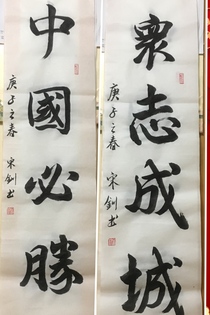 眾志成城
庚子之春 宋釗書
中國必勝
庚子之春 宋釗书